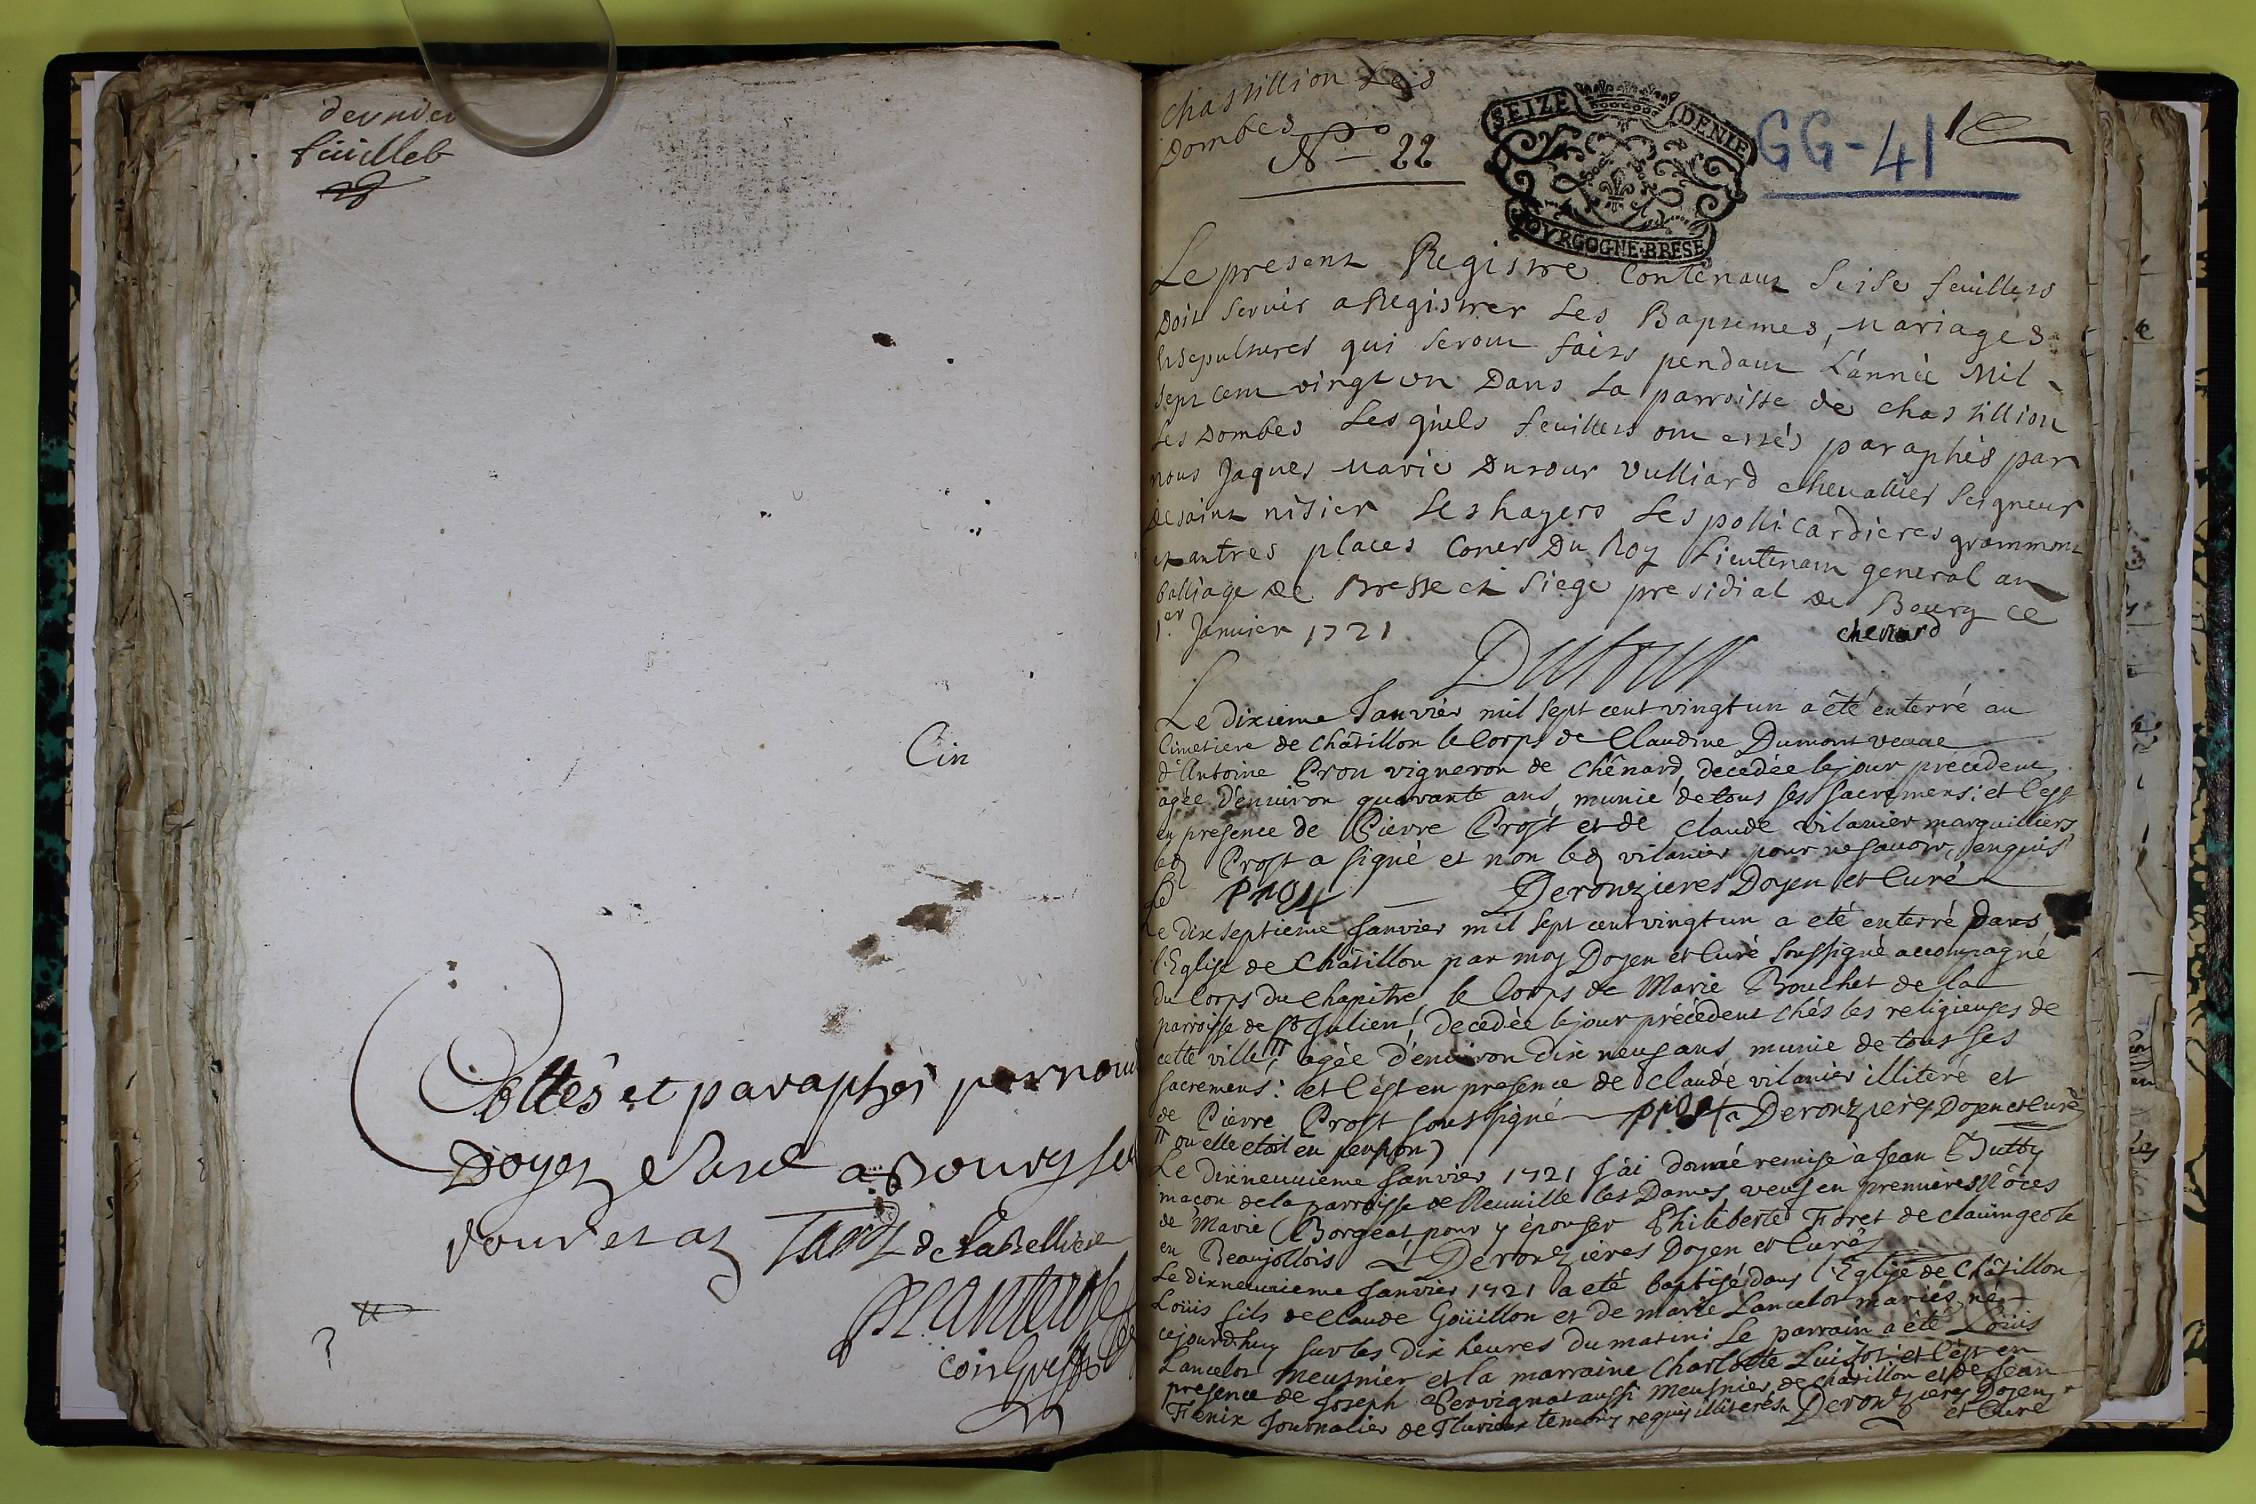 dernier
feuillet
Cin
Cottés et paraphés par nous
Doyen
de la Bellière
Chastillion Les
Dombes
N° - 22
SEIZE DENIE
BOVRGOGNE·BRESE
GG-41
1
Le present Registre Contenant Seise feuillets
Doit servir a Registrer Les Baptemes, Mariages
et sepultures qui seront faits pendant L'année Mil
sept cent vingt un Dans La parroisse de chastillion
Les Dombes Lesquels feuillets ont estés paraphés par
nous Jaques Marie Dutour Vulliard chevallier seigneur
de saint nisier Les hayers Les pollicardieres grammont
et autres places Coner Du Roy Lieutenant general au
balliage de Bresse et siege presidial de Bourg ce
1er. Janvier 1721
chenard
Dutour
Le dixieme Janvier mil sept cent vingt un a été enterré au
Cimetiere de Châtillon le Corps de Claudine Dumont veuve
d'Antoine Pron vigneron de Chênard, decedée le jour precedent,
agée d'environ quarante ans, munie de tous ses sacremens: et c'est
en presence de Pierre Prost et de Claude vilanier marguilliers,
led Prost a signé et non led vilanier pour ne savoir, enquis
Prost Deronzieres Doyen et Curé
Le dixseptieme Janvier mil sept cent vingt un a eté enterré dans
l'Eglise de Châtillon par moy Doyen et Curé soussigné accompagné
du Corps du Chapitre, le Corps de Marie Bouchet de la
parroisse de St Julien, decedée le jour précédent chés les religieuses de
cette ville, # agée d'environ dix neuf ans, munie de tous ses
sacremens: et c'est en presence de Claude vilanier illiteré et
de Pierre Prost soussigné Prost Deronzieres Doyen et Curé
# ou elle etoit en pension)
Le dixneuvieme Janvier 1721 J'ai donné remise à Jean Buthy
maçon de la parroisse de Neuville les Dames, veuf en premieres Nôces
de Marie Borgeat pour y épouser Philiberte Foret de
en Beaujollois Deronzieres Doyen et Curé
Le dixneuvieme Janvier 1721 a eté baptisé dans l'Eglise de Châtillon
Loüis fils de Claude Goüillon et de marie Lancelot mariés, né
cejourd'huy sur les dix heures du matin: Le parrain a été Loüis
Lancelot Meusnier et la marraine Charlotte Luisot: et c'est en
presence de Joseph Pervignat aussi Meusnier de Chatillon et de Jean
Fenix Journalier de Fluvieux temoins requis illiterés. Deronzieres Doyen
et Curé